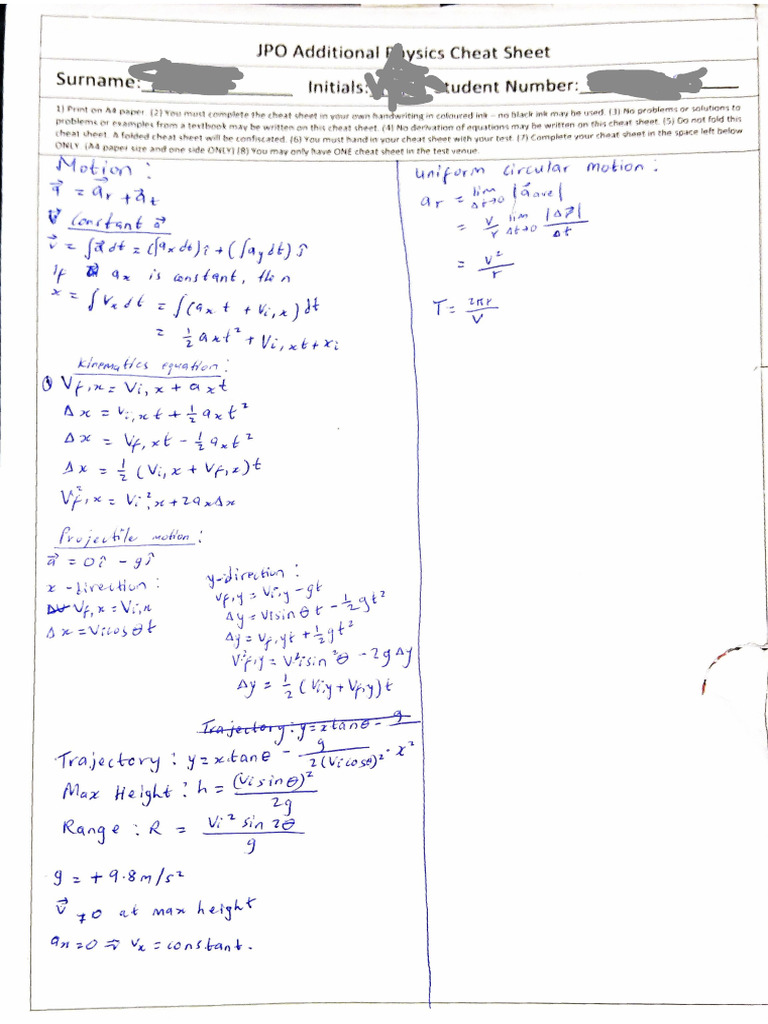 JPO Additional Physics Cheat Sheet
Surname:
Initials:
Student Number:
1) Print on A4 paper. (2) You must complete the cheat sheet in your own handwriting in coloured ink – no black ink may be used. (3) No problems or solutions to
problems or examples from a textbook may be written on this cheat sheet. (4) No derivation of equations may be written on this cheat sheet. (5) Do not fold this
cheat sheet. A folded cheat sheet will be confiscated. (6) You must hand in your cheat sheet with your test. (7) Complete your cheat sheet in the space left below
ONLY. (A4 paper size and one side ONLY) (8) You may only have ONE cheat sheet in the test venue.
Motion:
a⃗ = a⃗r + a⃗t
Constant a⃗
v⃗ = ∫a⃗ dt = (∫ax dt) î + (∫ay dt) ĵ
If ax is constant, then
x = ∫Vx dt = ∫(ax t + Vi,x) dt
= 1/2 axt² + Vi,xt + xi
Kinematics equation:
① Vf,x = Vi,x + axt
Δx = Vi,xt + 1/2 axt²
Δx = Vf,xt - 1/2 axt²
Δx = 1/2 (Vi,x + Vf,x)t
Vf²,x = Vi²,x + 2axΔx
Projectile motion:
a⃗ = 0î - gĵ
x-direction:
Vf,x = Vi,x
Δx = Vicosθt
y-direction:
Vf,y = Vi,y - gt
Δy = Visinθt - 1/2 gt²
Δy = Vf,yt + 1/2 gt²
V²f,y = V²isin²θ - 2gΔy
Δy = 1/2 (Vi,y + Vf,y)t
Trajectory: y = xtanθ - g
Trajectory: y = x.tanθ - g/2(Vicosθ)² · x²
Max Height: h = (Visinθ)²/2g
Range: R = Vi² sin 2θ/g
g = +9.8m/s²
v⃗ ≠0 at max height
ax=0 ⇒ Vx = constant.
Uniform circular motion:
ar = lim Δt→0 |a⃗ave|
= v/r lim Δt→0 |Δr⃗|/Δt
= v²/r
T = 2πr/v